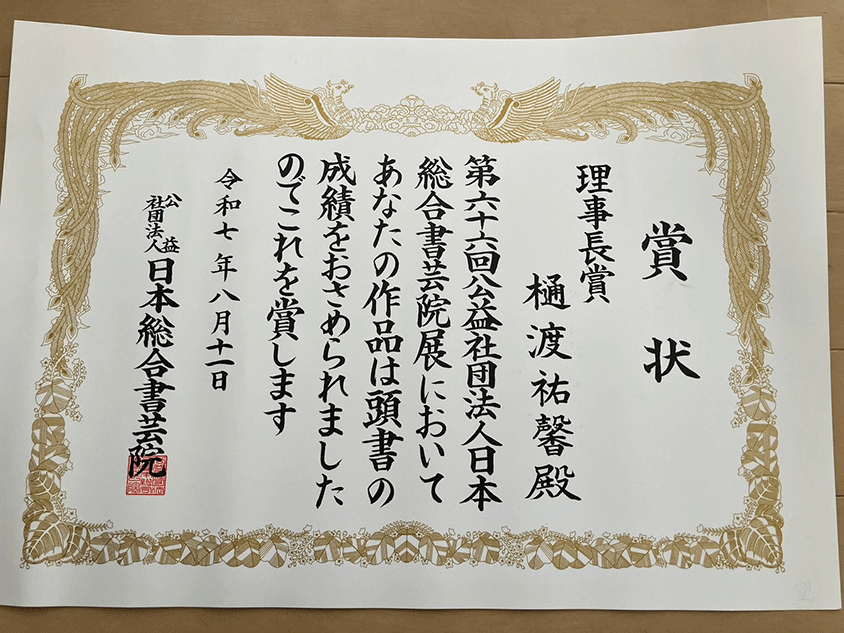 賞状
理事長賞
樋渡祐馨殿
第六十六回公益社団法人日本
総合書芸院展において
あなたの作品は頭書の
成績をおさめられました
のでこれを賞します
令和七年八月十一日
公益社団法人日本総合書芸院